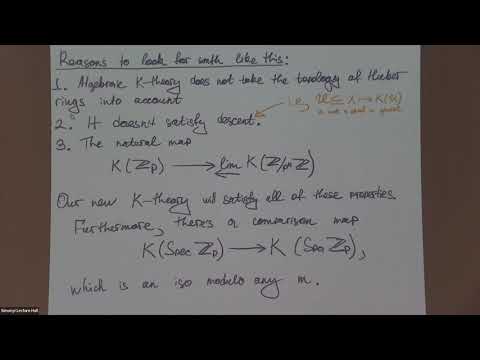 Reasons to look for smth like this:
1. Algebraic K-theory does not take the topology of Huber
rings into account
2. It doesn't satisfy descent.
i.e., U ⊆ X ↦ K(U)
is not a sheaf in general
3. The natural map
K(ℤp) → lim K(ℤ/pⁿℤ)
Our new K-theory will satisfy all of these properties.
Furthermore, there's a comparison map
K(Spec ℤp) → K(Spa ℤp),
which is an iso modulo any m.
Simonyi Lecture Hall